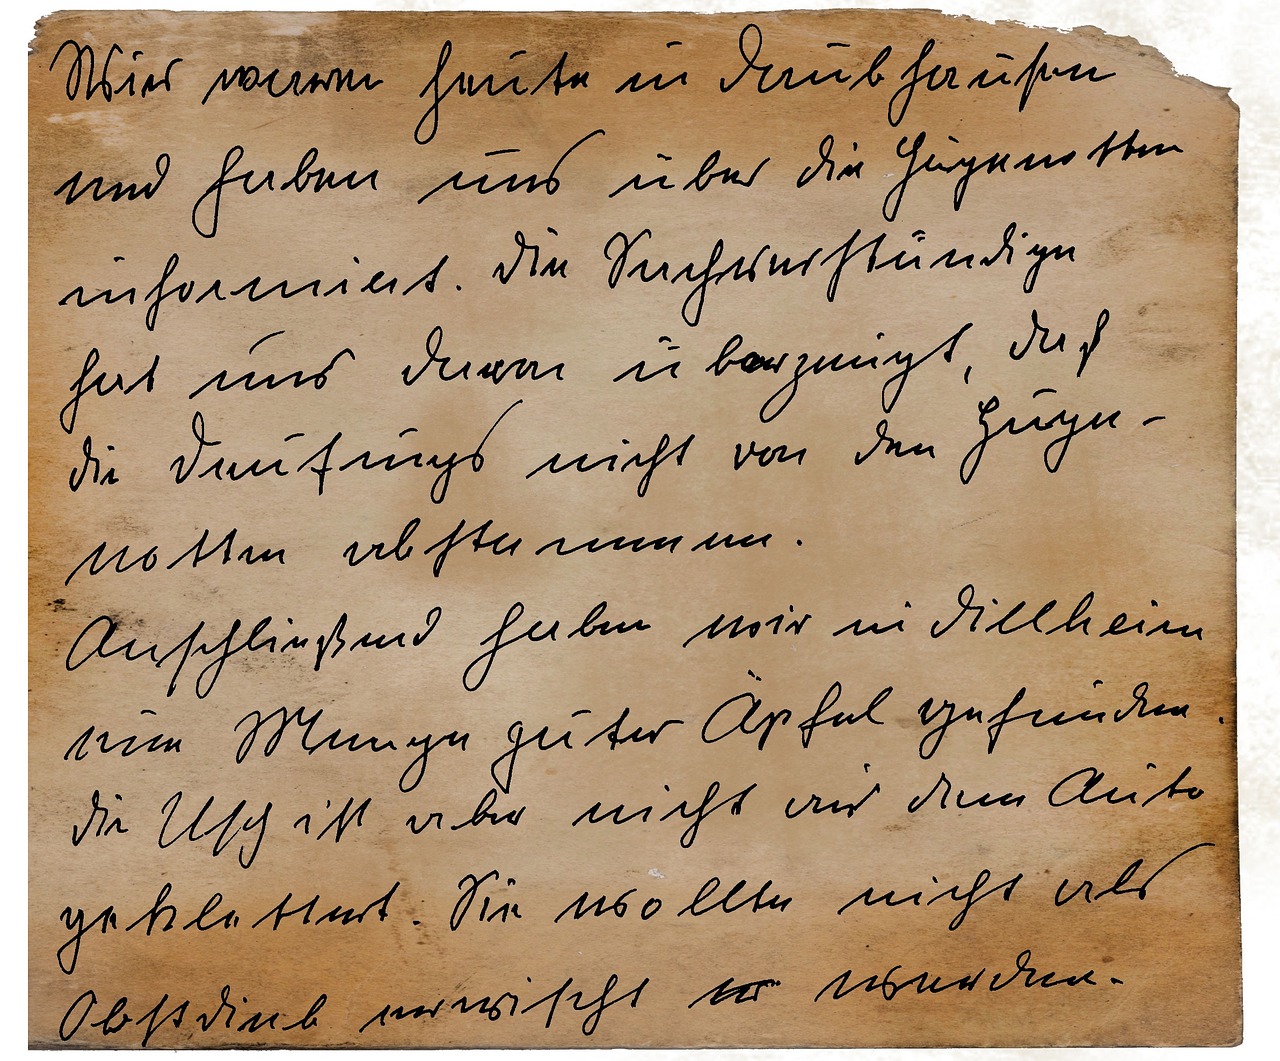 Wir waren heute in Daubhausen
und haben uns über die Hugenotten
informiert. Die Sachverständige
hat uns davon überzeugt, daß
die Daufungs nicht von den Huge-
notten abstammen.
Anschließend haben wir in Dillheim
eine Menge guter Äpfel gefunden.
die Usch ist aber nicht aus dem Auto
geklettert. Sie wollte nicht als
Obstdieb erwischt werden.